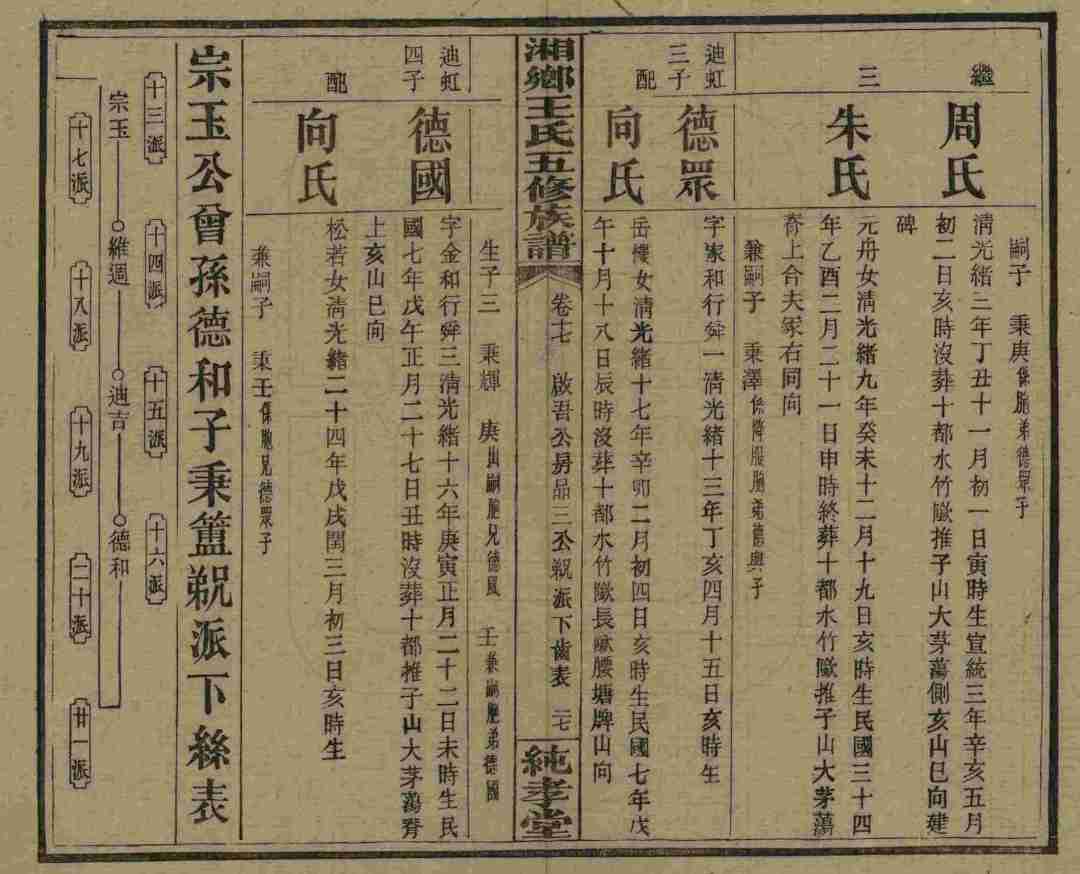 嗣子 秉庚係胞弟德眾子
繼
周氏
清光緒三年丁丑十一月初一日寅時生宣統三年辛亥五月
初二日亥時沒葬十都水竹陇推子山大茅蕩側亥山巳向建
碑
三
朱氏
元舟女清光緒九年癸未十二月十九日亥時生民國三十四
年乙酉二月二十一日申時終葬十都水竹陇推子山大茅蕩
脊上合夫冢右同向
兼嗣子 秉澤係降服胞弟德興子
迪虹
三子
德眾
字家和行舜一清光緒十三年丁亥四月十五日亥時生
配
向氏
岳懷女清光緒十七年辛卯二月初四日亥時生民國七年戊
午十月十八日辰時沒葬十都水竹陇長陇腰塘牌山向
湘鄉王氏五修族譜
卷七 啟吾公昺品三公覡派下齒表 二七
純孝堂
生子三 秉輝 庚出嗣胞兄德風 壬兼嗣胞弟德國
迪虹
四子
德國
字金和行舜三清光緒十六年庚寅正月二十二日未時生民
國七年戊午正月二十七日丑時沒葬十都推子山大茅蕩脊
上亥山巳向
配
向氏
松若女清光緒二十四年戊戌閏三月初三日亥時生
兼嗣子 秉壬係胞兄德眾子
宗玉公曾孫德和子秉簠覡派下絲表
十三派 十四派 十五派 十六派
宗玉 維週 迪吉 德和
十七派 十八派 十九派 二十派 廿一派